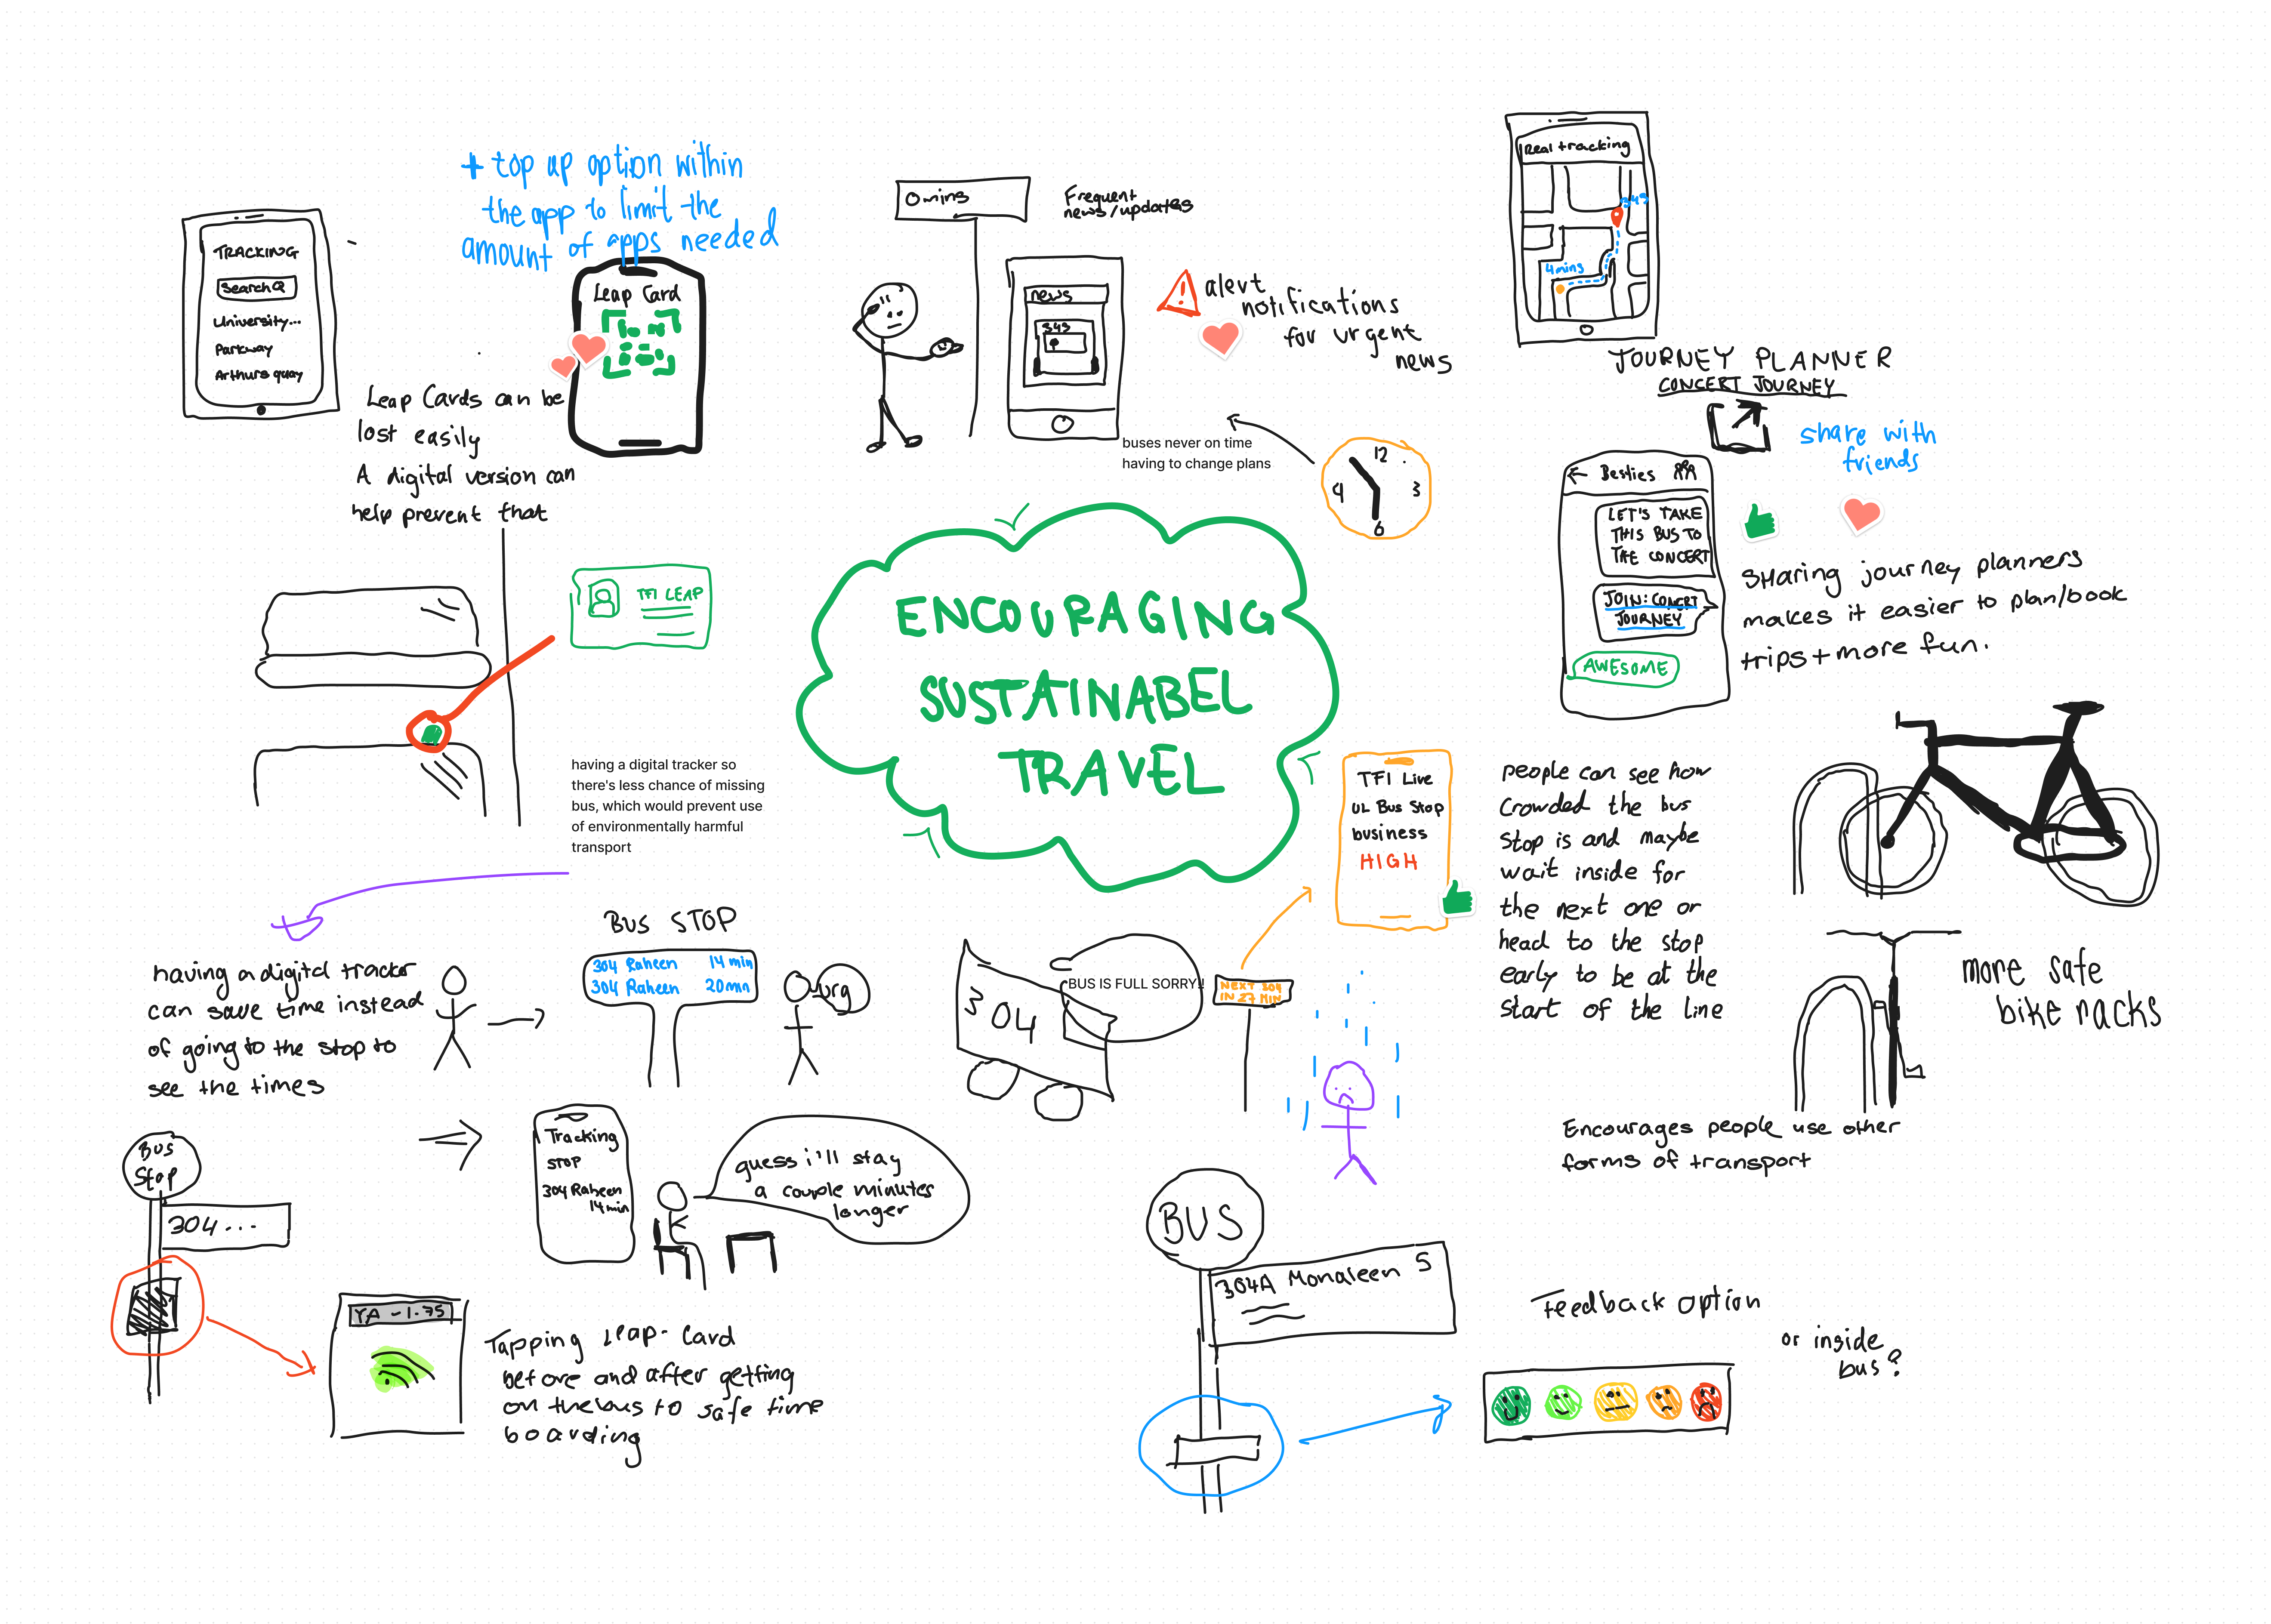 + top up option within
the app to limit the
amount of apps needed
TRACKING
Search
University...
Parkway
Arthurs quay
Leap Card
Leap Cards can be
lost easily
A digital version can
help prevent that
0 mins
Frequent
news/updates
news
343
! alert
notifications
for urgent
news
buses never on time
having to change plans
12
3
6
4
Real tracking
343
4mins
JOURNEY PLANNER
CONCERT JOURNEY
share with
friends
← Besties
LET'S TAKE
THIS BUS TO
THE CONCERT
JOIN: CONCERT
JOURNEY
AWESOME
SHaring journey planners
makes it easier to plan/book
trips + more fun.
TFI LEAP
ENCOURAGING
SUSTAINABEL
TRAVEL
having a digital tracker so
there's less chance of missing
bus, which would prevent use
of environmentally harmful
transport
TFI Live
UL Bus Stop
business
HIGH
people can see how
crowded the bus
stop is and maybe
wait inside for
the next one or
head to the stop
early to be at the
start of the line
more safe
bike racks
Encourages people use other
forms of transport
having a digital tracker
can save time instead
of going to the stop to
see the times
BUS STOP
304 Raheen 14 min
304 Raheen 20min
urg
304
BUS IS FULL SORRY!!
NEXT 304
IN 27 MIN
Bus
Stop
304...
Tracking
STOP
304 Raheen
14 min
guess i'll stay
a couple minutes
longer
YA - 1.75
Tapping Leap-Card
before and after getting
on the bus to safe time
boarding
BUS
304A Monaleen 5
Feedback option
or inside
bus?